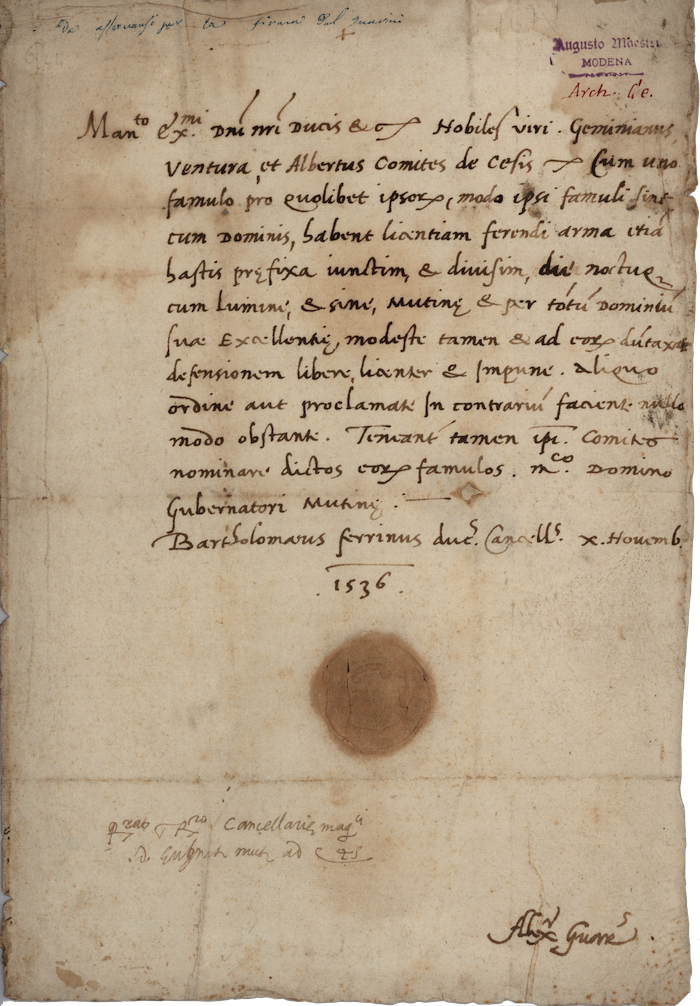 per la firma del guarini
Augusto Maestri
MODENA
Arch. Ge.
Manto exmi Dnī nrī Ducis & c Nobiles viri. Geminianus,
Ventura, et Albertus Comites de Cesis Cum uno
famulo pro quolibet ipsorx, modo ipsi famuli sint
cum Dominis, habent licentiam ferendi arma etiā
hastis pręfixa iunctim, & divisim, die noctuq
cum lumine, & sine, Mutinę & per totū Dominiū
suæ Excellentię, modeste tamen & ad eorx dūtaxat
defensionem libere, licenter & Impune. Aliquo
ordine aut proclamate In contrariū faciente nullo
modo obstante. Teneant tamen ipi. Comites
nominare dictos eorx famulos. mco Domino
Gubernatori Mutinę.
Bartholomæus ferrinus duc.s Cancell.s x. Novemb.
1536.
Cancellarie, magci
ad
Alexr Guars.